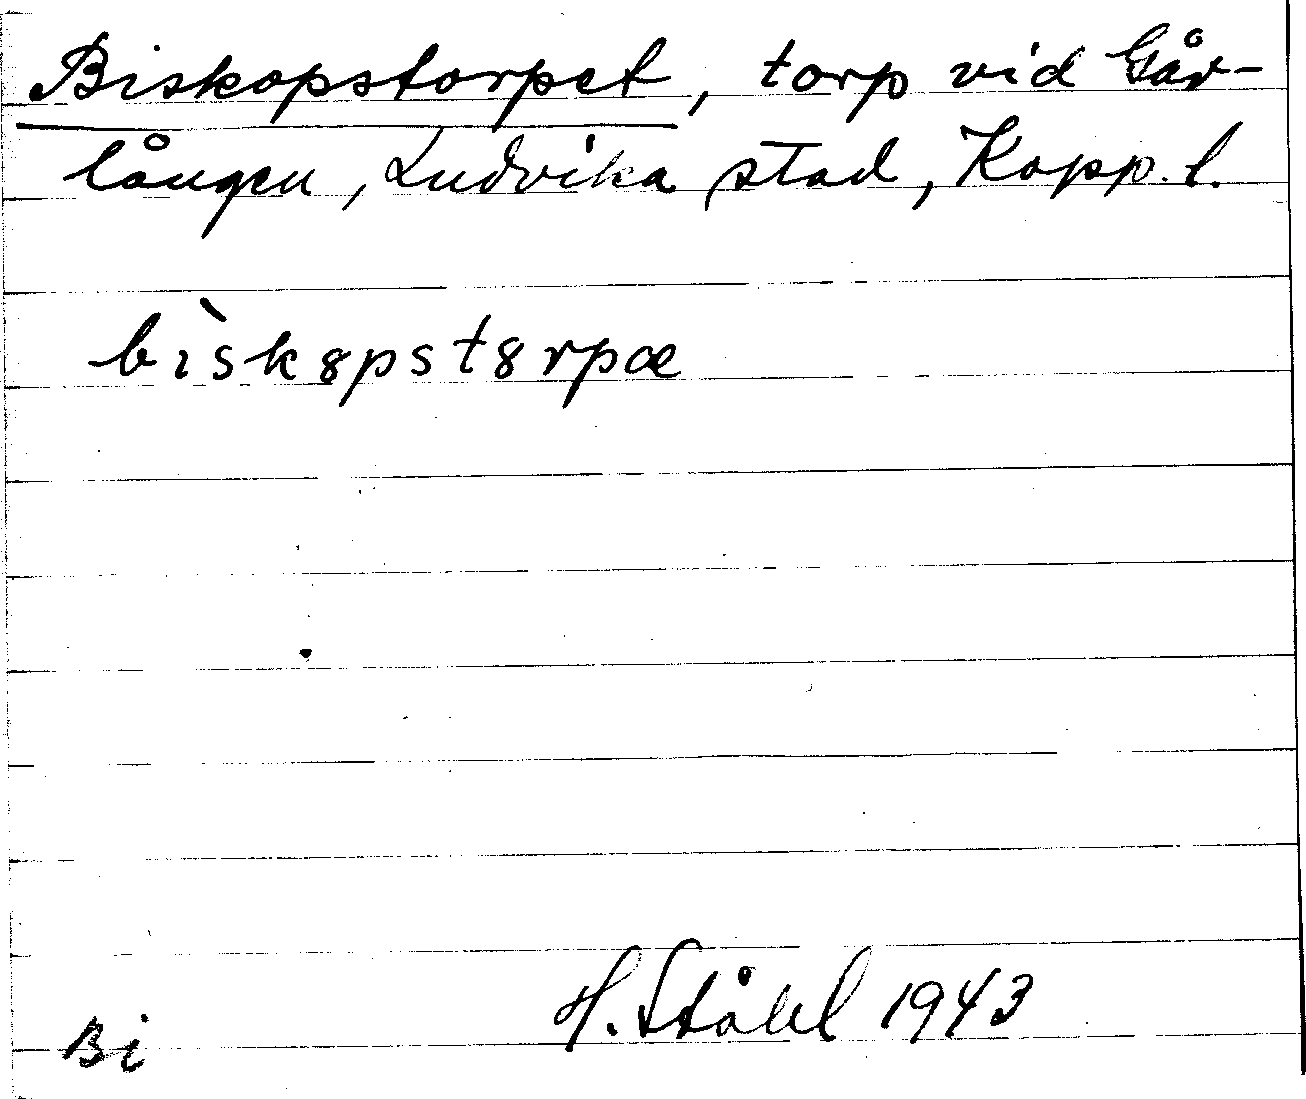 Biskopstorpet, torp vid Går-
lången, Ludvika stad, Kopp. l.
bìskȣpstȣrpæ
H. Ståhl 1943
Bi